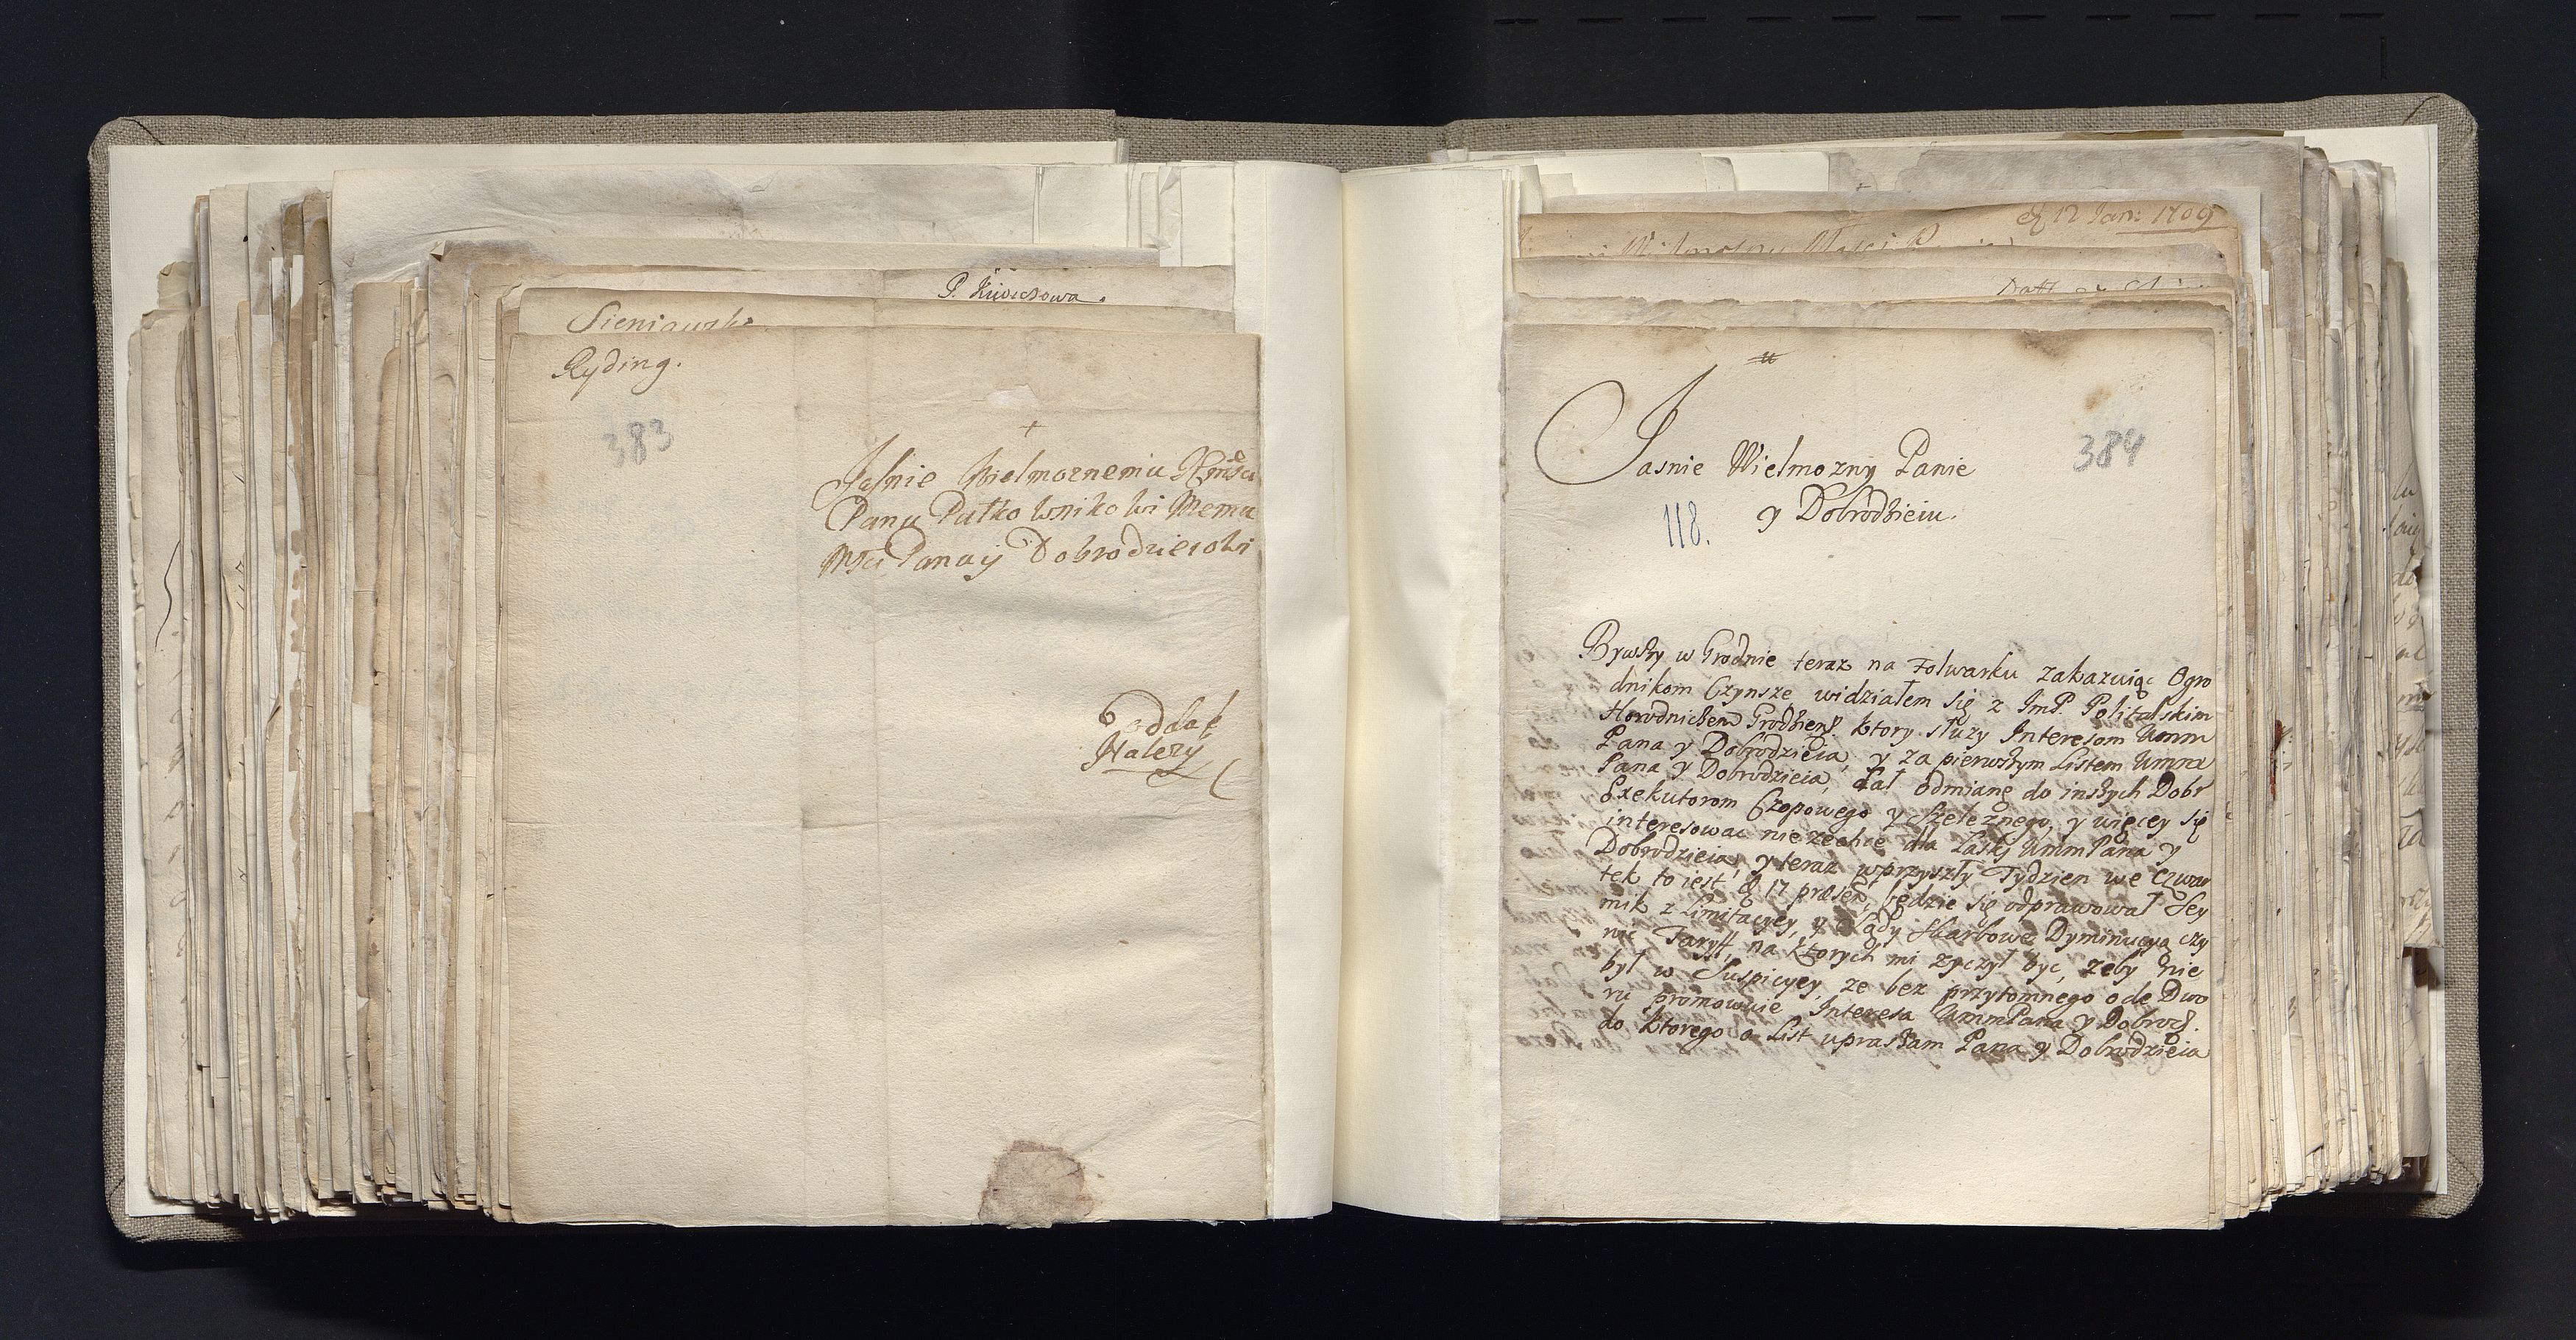 P. Kiwiczowa.
Sieniawski
Ryding.
383
+
Jasnie Wielmoznemu Jmsci
Panu Pułkownikowi Memu
Msci Panu ÿ Dobrodzieiowi
oddać
Należy
₰ 12 Jan: 1709
384
Jasnie Wielmozny Panie
y Dobrodzieiu.
118.
Bywszy w Grodnie teraz na Folwarku zakazuiąc Ogro
dnikom Czynsze widziałem się z ImP Politalskim
Horodniczem Grodzień. ktory słuzy Interesom Wmm
Pana y Dobrodzieia, y za pierwszym Listem Wmm
Pana y Dobrodzieia, dał odmianę do inszych Dobr
Exekutorom Czopowego y Szelęznego, y więcey się
interesowac nie zechce dla Łaskj WmmPana y
Dobrodzieia, y teraz wprzyszły Tydzien we czwar
tek to iest ₰ 17 præsen, będzie się odprawował Sey
mik z limitacyey, y Sądy Skarbowe Dyminucya czy
nic Taryff, na ktorych mi zyczył byc, zeby nie
był w Suspicyey, ze bez przytomnego ode Dwo
ru promowuie Interesa WmmPana y Dobrodz.
do ktorego o List upraszam Pana y Dobrodzieia